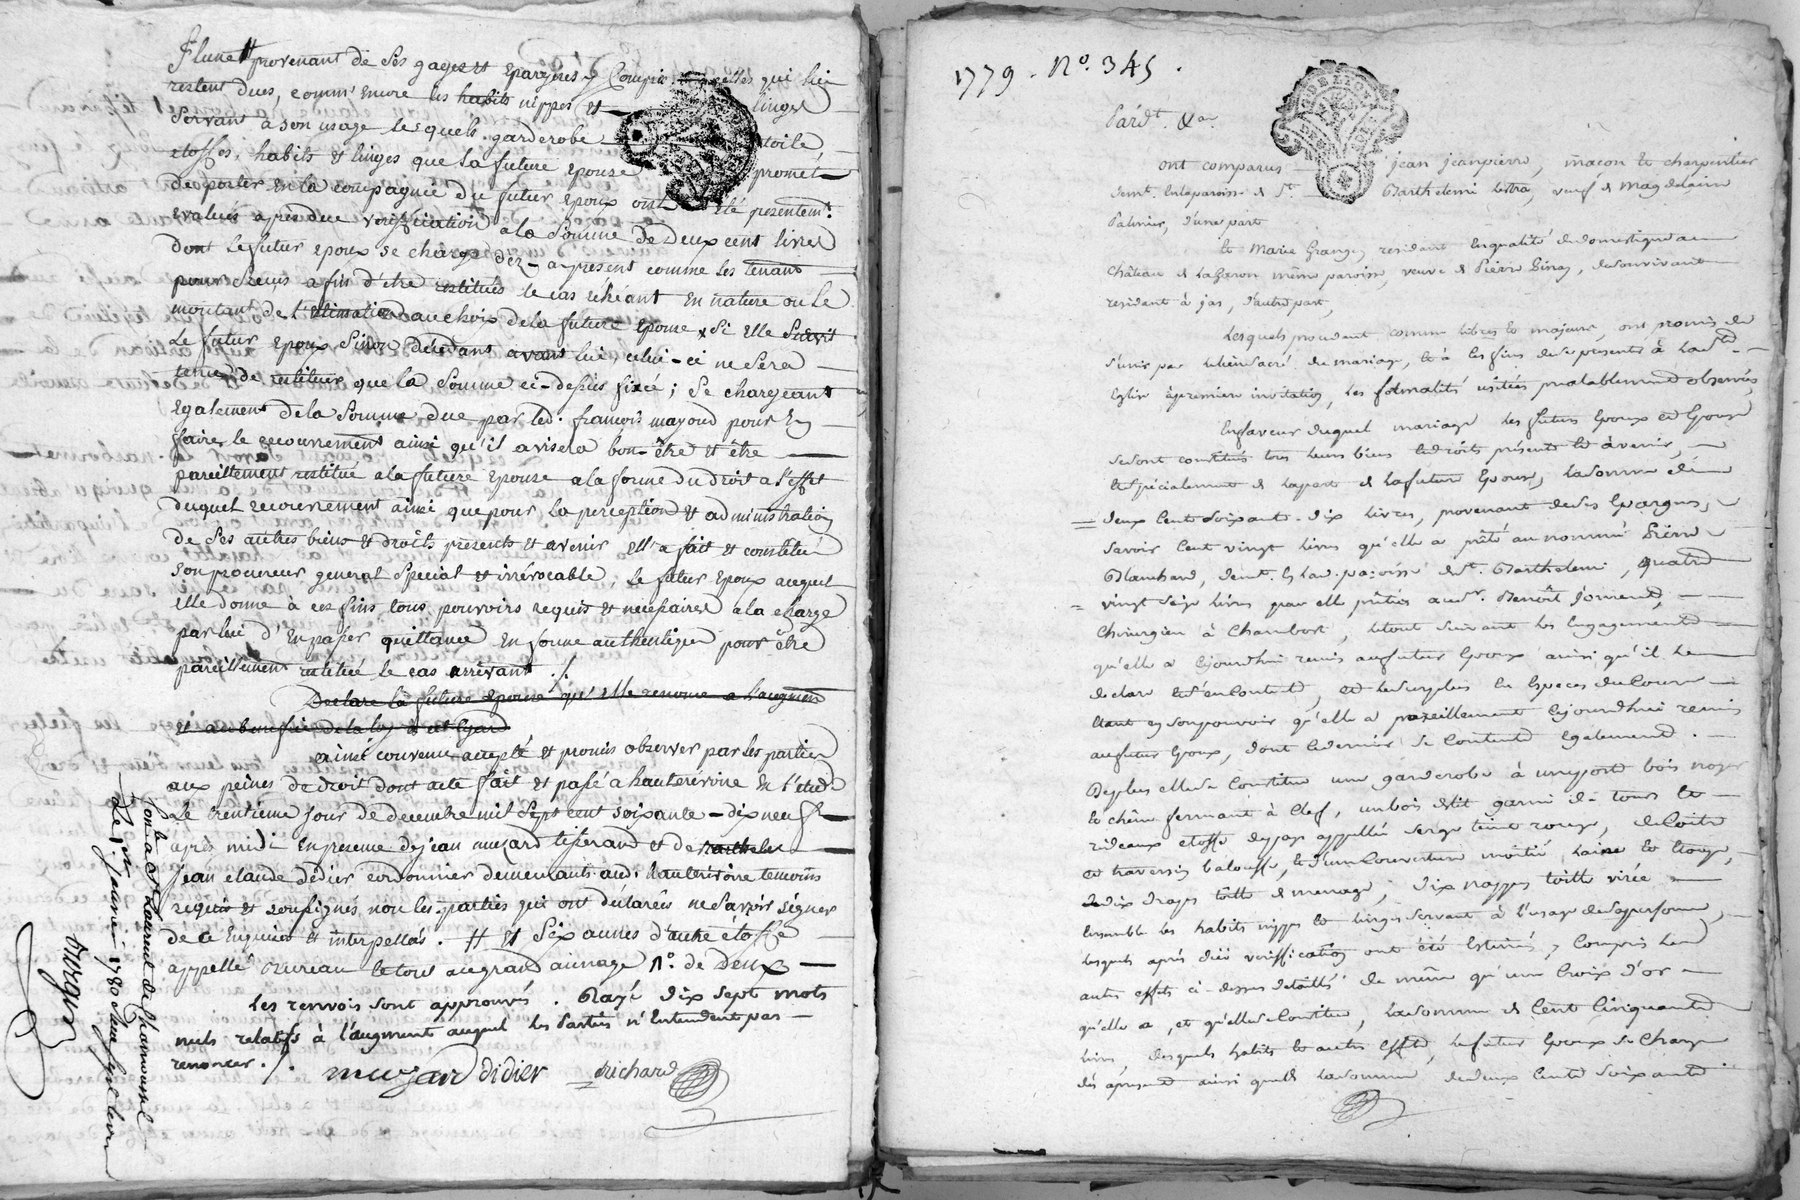 flune # provenant de ses gages et epargnes y compris celles qui lui
restent dues, comm'encore les habits nippes et linges
servant a son usage lesquels garderobe toile
etoffes, habits et linges que la future epouse promét
de porter en la compagnie du futur epoux ont été presentemt.
evalués apres due verification a la somme de deux cent livres
dont le futur epoux se charge dez-apresent comme les tenant
pour recus afin d'être restitués le cas échéant en nature ou le
montant de l'estimation au choix de la future epouse x si elle survit
le futur epoux sinon décédant avant lui, celui-ci ne sera
tenu de restituer que la somme ci-dessus fixée; se chargeant
egalement de la somme due par led. francois mayoud pour en
faire le recouvrement ainsi qu'il avisera bon-être et être
pareillement restitué a la future epouse a la forme du droit a l'effet
duquel recouvrement ainsi que pour la perception et administration
de ses autres biens et droits presents et avenir ell'a fait et constitué
son procureur general special et irrévocable, le futur epoux auquel
elle donne à ces fins tous pouvoirs requis et necessaires a la charge
par lui d'en passer quittance en forme authentique pour être
pareillement restitué le cas arrivant ./.
Declare la future epouse qu'elle renonce a l'augment
et au benefice de la loy a cet egard
ainsi convenu accepté et promis observer par les parties
aux peines de droit dont acte fait et passé a hauterivoire en l'etude
le trentieme jour de decembre mil sept cent soixante-dix neuf
après midi en presence de jean muzard tisserand et de
jean claude didier cordonnier demeurants aud. hauterivoire temoins
requis et soussignés non les parties qui ont déclarés ne savoir signer
de ce enquises et interpellés. # et six aunes d'autre étoffe
appellé bureau le tout au grand aunage No. de deux
Les renvois sont approuvés. Rayé dix sept mots
nuls relatifs à l'augment auquel les parties n'entendent pas
renoncer ./.
muzard didier richard
à St Laurent de Chamousset
Le janvier 1780
1779. No. 345.
Pardt. &a.
ont comparus jean jeanpierre, macon et charpentier
demt. en la paroisse de St. Barthelemi Lestra, veuf de Magdelaine
Palmier, d'une part
et Marie Grange, residant en qualité de domestique au
Château de même paroisse, veuve de Pierre Giroy, de son vivant
residant à jas, d'autre part,
Lesquels procedant comme libres et majeurs, ont promis de
s'unir par le lien sacré du mariage, et à ces fins de se presenter à la Ste
Eglise à premiere invitation, les formalités usitées prealablement observées,
En faveur duquel mariage les futurs Epoux et Epouse
se sont constitués tous leurs biens et droits présents et à venir,
et spécialement de la part de la future Epouse, la somme de
deux Cent soixante-dix livres, provenant de ses Epargnes,
savoir Cent vingt livres qu'elle a prêté au nommé Pierre
Blanchard, demt. en lad. paroisse de St. Barthelemi, quatre
vingt seize livres par elle prêtées au sr. Benoît
Chirurgien à Chambost, le tout suivant les Engagements
qu'elle a Cejourdhui remis au futur Epoux ainsi qu'il le
declare et s'en Contente, et le surplus en Especes de Cours
etant en son pouvoir qu'elle a pareillement Cejourdhui remis
au futur Epoux, dont ce dernier se Contente Egalement.
De plus elle se Constitue une garderobe à une porte bois noyer
et chêne fermant à Clef, un bois de lit garni de tours et
rideaux etoffe de pays appellée serge teint rouge, de Coite
et traversin balouffe, et d'une Couverture moitié laine et
de dix draps toille de menage, dix nappes toille
Ensemble les habits nippes et linges servant à l'usage de sa personne,
lesquels après düe veriffication ont été Estimés, y Compris les
autres effets ci-dessus detaillés de même qu'une Croix d'or
qu'elle a, et qu'elle se Constitue, la somme de Cent Cinquante
livres desquels habits et autres effets, le futur Epoux se Charge
dès apresent ainsi que de la somme de deux Cent soixante